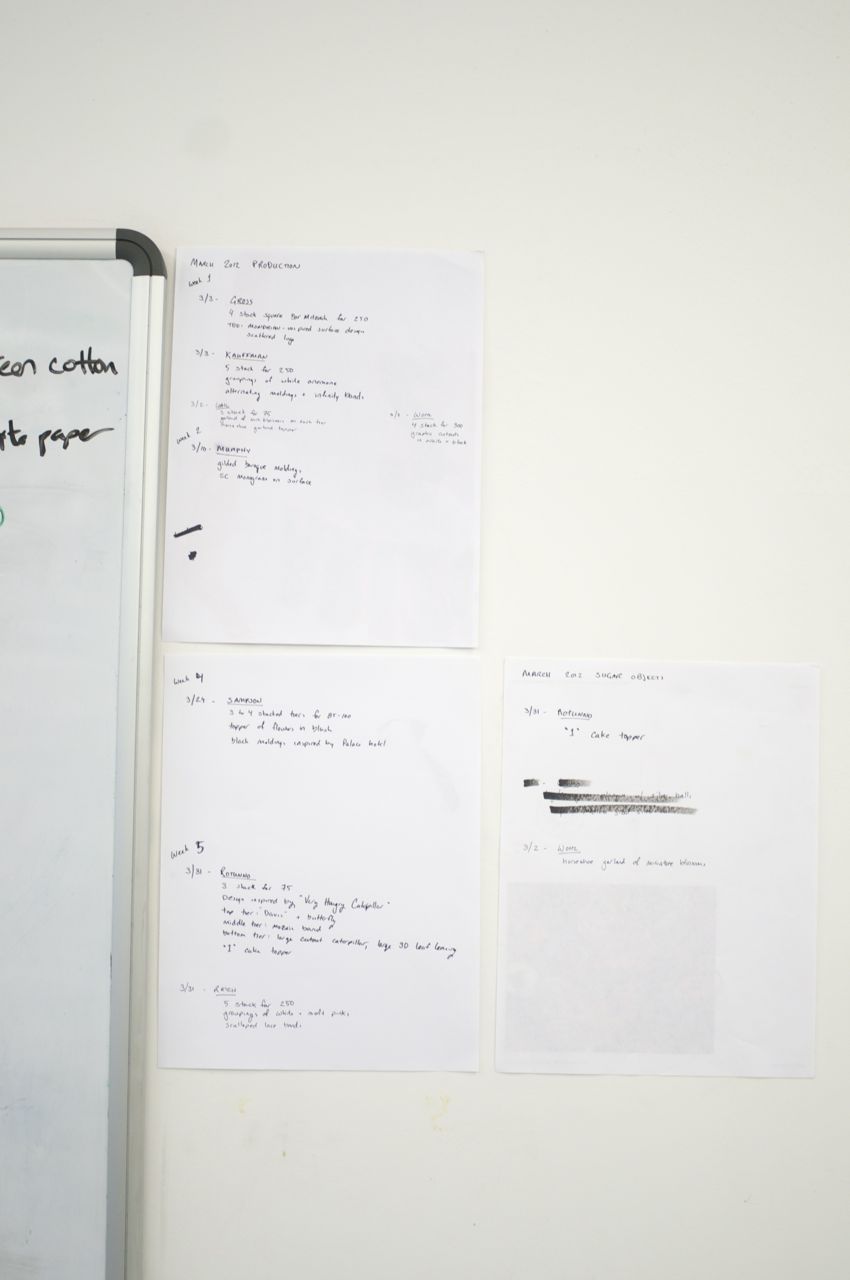 een cotton
paper
MARCH 2012 PRODUCTION
week 1
3/3 - GROSS
4 stack square Bar Mitzvah for 250
TBD: MONDRIAN-inspired surface design
scattered logo
3/3 - KAUFFMAN
5 stack for 250
groupings of white anemone
alternating moldings + infinity bands
3/2 -
3 stack for 75
garland of blossoms on each tier
horseshoe garland topper
3/3 - WONG
4 stack for 300
graphic cutouts
in white + black
week 2
3/10 - MURPHY
gilded baroque molding,
SC monogram on surface
Week 4
3/24 - SAMPSON
3 to 4 stacked tiers for 85-100
topper of flowers in blush
black moldings inspired by Palace hotel
Week 5
3/31 - ROTUNNO
3 stack for 75
Design inspired by "Very Hungry Caterpillar"
top tier: + butterfly
middle tier: mosaic band
bottom tier: large cutout caterpillar, large 3D leaf leaning
"1" cake topper
3/31 - REICH
5 stack for 250
groupings of white + soft pinks
scalloped lace bands
MARCH 2012 SUGAR OBJECTS
3/31 - ROTUNNO
"1" cake topper
3/2 -
horseshoe garland of miniature blossoms